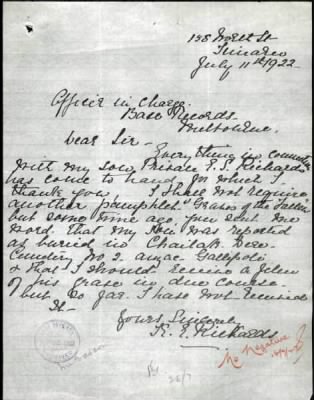 138 North St
Timaru
July 11th 1922.
Officer in Charge
Base Records.
Melbourne.
Dear Sir -
Everything in connection
with my son, Private T. S. Richards
has come to hand for which I
thank you. I shall not require
another pamphlet "Graves of the Fallen"
but some time ago you sent me
word that my son was reported
as buried in Chailak Dere
Cemetery No 2. Anzac Gallipoli
& that I should receive a
of his grave in due course
but so far I have not received
it -
Yours Sincerely
R. E. Richards
No Negative
26/7